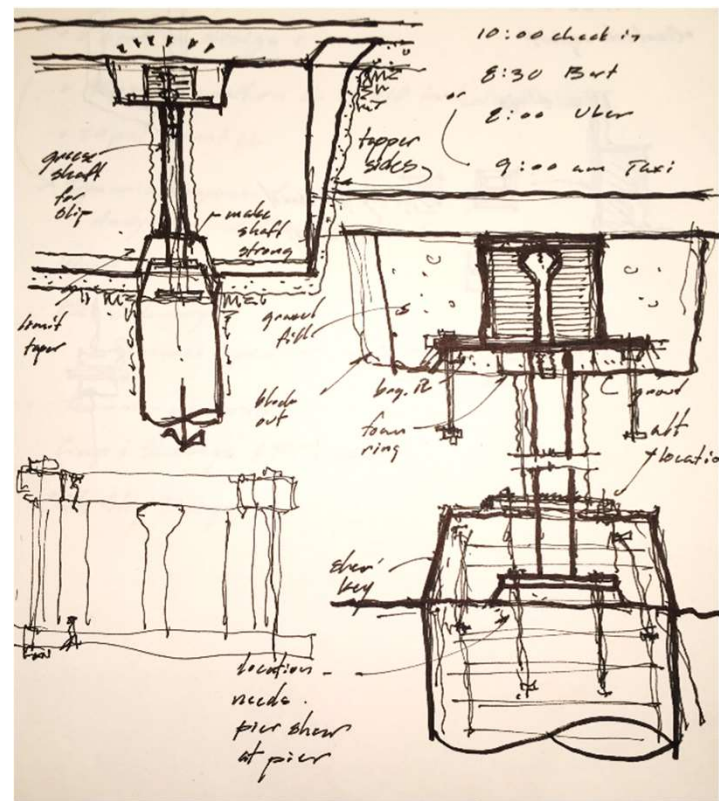 10:00 check in
8:30 Bart
or
8:00 Uber
9:00 am Taxi
grease
shaft
for
slip
make
shaft
strong
tapper
sides
limit
taper
gravel
fill
block
out
foam
ring
alt
location
shear
key
location
needs
pier shear
at pier